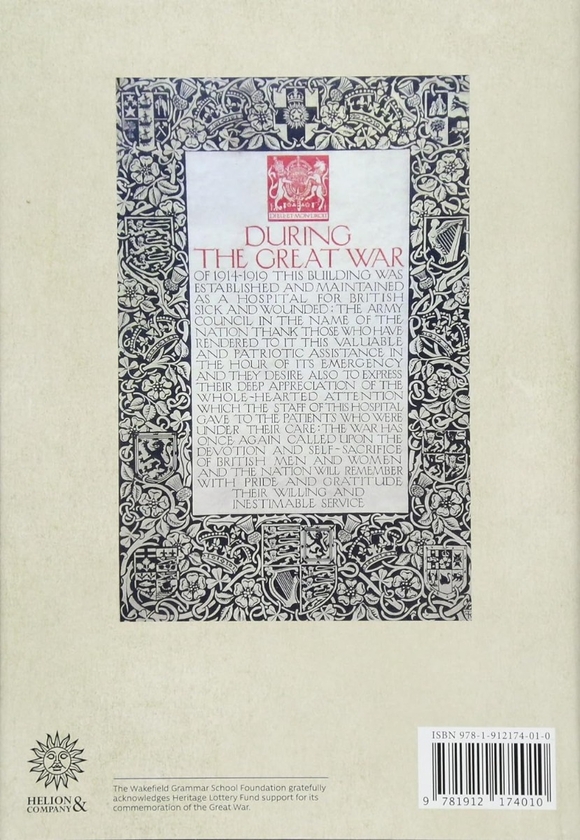 DIEU ET MON DROIT
DURING
THE GREAT WAR
OF 1914-1919 THIS BUILDING WAS
ESTABLISHED AND MAINTAINED
AS A HOSPITAL FOR BRITISH
SICK AND WOUNDED : THE ARMY
COUNCIL IN THE NAME OF THE
NATION THANK THOSE WHO HAVE
RENDERED TO IT THIS VALUABLE
AND PATRIOTIC ASSISTANCE IN
THE HOUR OF ITS EMERGENCY
AND THEY DESIRE ALSO TO EXPRESS
THEIR DEEP APPRECIATION OF THE
WHOLE-HEARTED ATTENTION
WHICH THE STAFF OF THIS HOSPITAL
GAVE TO THE PATIENTS WHO WERE
UNDER THEIR CARE : THE WAR HAS
ONCE AGAIN CALLED UPON THE
DEVOTION AND SELF-SACRIFICE
OF BRITISH MEN AND WOMEN
AND THE NATION WILL REMEMBER
WITH PRIDE AND GRATITUDE
THEIR WILLING AND
INESTIMABLE SERVICE
HELION &
COMPANY
The Wakefield Grammar School Foundation gratefully
acknowledges Heritage Lottery Fund support for its
commemoration of the Great War.
ISBN 978-1-912174-01-0
9 781912 174010